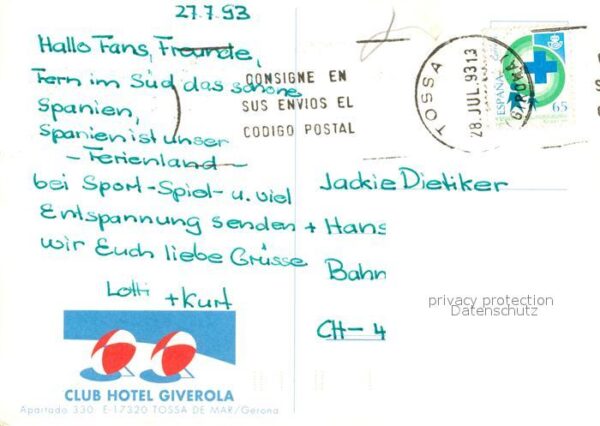 27.7.93
Hallo Fans, Freunde,
Fern im Süd das schöne
Spanien,
Spanien ist unser
- Ferienland -
bei Sport-Spiel- u. viel
Entspannung senden
wir Euch liebe Grüsse
Lotti
+ Kurt
CONSIGNE EN
SUS ENVIOS EL
CODIGO POSTAL
TOSSA
28.JUL.93 13
GIRONA
ESPAÑA
65
Jackie Dietiker
+ Hans
Bahn
CH-4
privacy protection
Datenschutz
CLUB HOTEL GIVEROLA
Apartado 330 E-17320 TOSSA DE MAR/Gerona